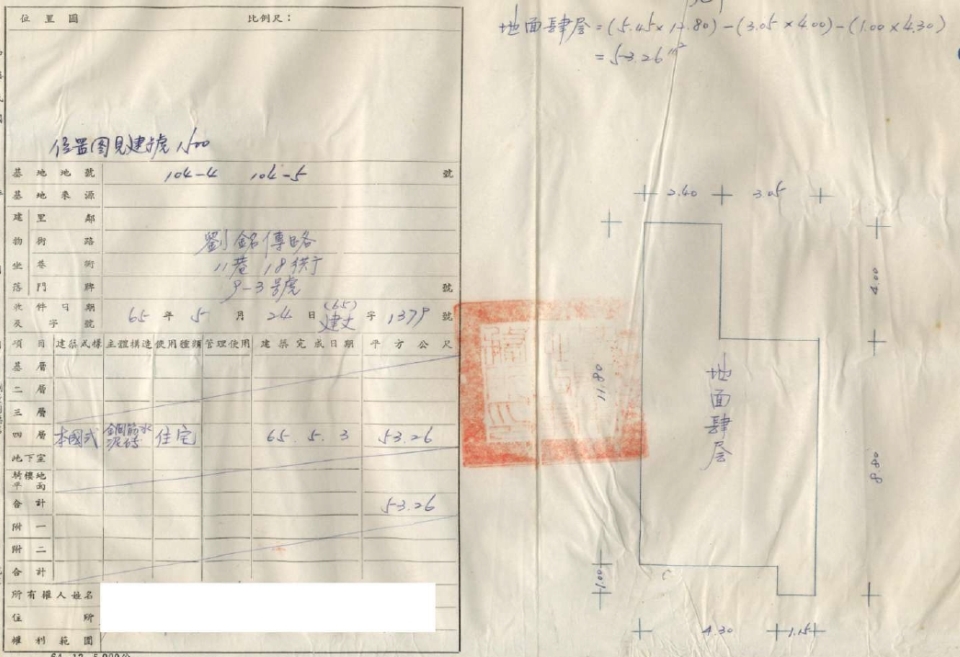 位置圖 比例尺：
位置圖見建號1500
基地地號 104-4 104-5 號
基地來源
建 里 鄰
物 街 路 劉銘傳路
坐 巷 衖 11巷 18衖
落 門 牌 9-3號 號
收件日期 65年5月24日
及字號 (65)建丈字1379號
項目 建築式樣 主體構造 使用種類 管理使用 建築完成日期 平方公尺
基層
二層
三層
四層 本國式 鋼筋水泥磚 住宅 65.5.3 53.26
地下室
騎樓地平面
合計 53.26
附一
附二
合計
所有權人姓名
住所
權利範圍
地面肆层=(5.45×11.80)-(3.05×4.00)-(1.00×4.30)
=53.26m²
2.40 3.05
4.00
11.80
地面肆层
1.00
4.30 1.15